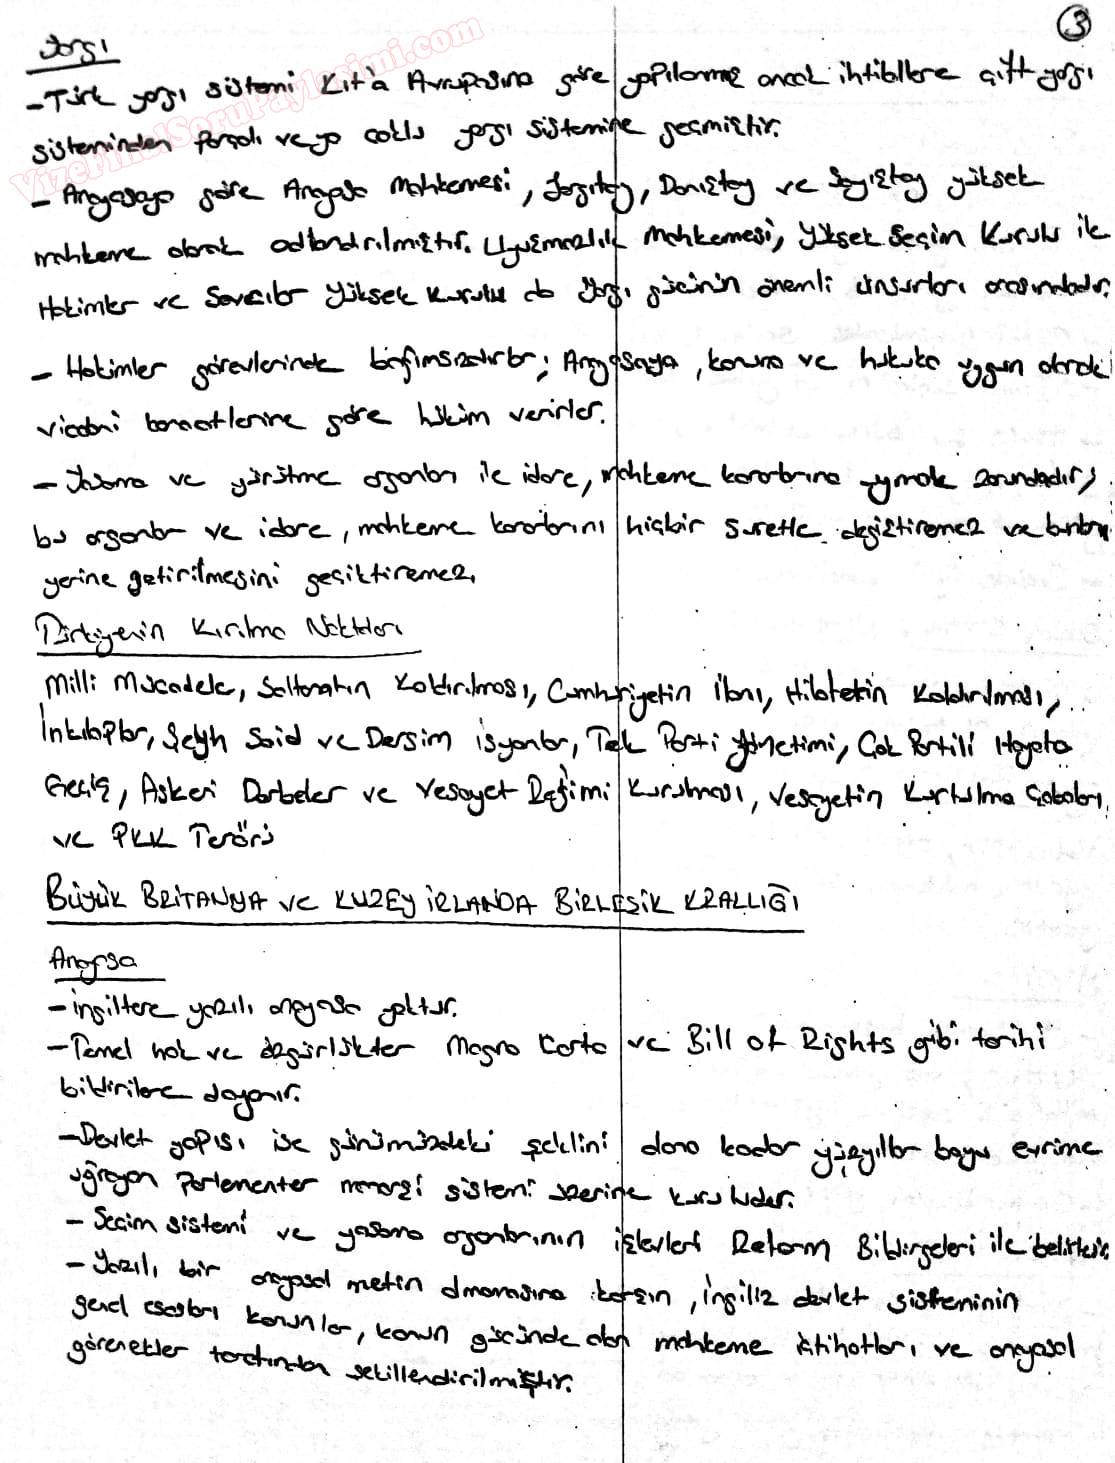 3
Yargı
VizeFinalSoruPaylasimi.com
- Türk yargı sistemi Kıt'a Avrupasına göre yapılanmış ancak ihtilallere çift yargı
sisteminden parçalı veya çoklu yargı sistemine geçmiştir.
- Anayasaya göre Anayasa Mahkemesi, Yargıtay, Danıştay ve Sayıştay yüksek
mahkeme olarak adlandırılmıştır. Uyuşmazlık Mahkemesi, Yüksek Seçim Kurulu ile
Hakimler ve Savcılar Yüksek Kurulu da Yargı gücünün önemli unsurları arasındadır.
- Hakimler görevlerinde bağımsızdırlar; Anayasaya, kanuna ve hukuka uygun olarak
vicdani kanaatlerine göre hüküm verirler.
- Yasama ve yürütme organları ile idare, mahkeme kararlarına uymak zorundadır;
bu organlar ve idare, mahkeme kararlarını hiçbir suretle değiştiremez ve bunların
yerine getirilmesini geciktiremez.
Türkiyenin Kırılma Noktaları
Milli Mücadele, Saltanatın Kaldırılması, Cumhuriyetin İlanı, Hilafetin Kaldırılması,
İnkılaplar, Şeyh Said ve Dersim isyanları, Tek Parti Yönetimi, Çok Partili Hayata
Geçiş, Askeri Darbeler ve Vesayet Rejimi Kurulması, Vesayetin Kurtulma Çabaları,
ve PKK Terörü
BÜYÜK BRİTANYA VE KUZEY İRLANDA BİRLEŞİK KRALLIĞI
Anayasa
- İngiltere yazılı anayasa yoktur.
- Temel hak ve özgürlükler Magna Carta ve Bill of Rights gibi tarihi
bildirilere dayanır.
- Devlet yapısı ise günümüzdeki şeklini alana kadar yüzyıllar boyu evrime
uğrayan Parlementer monarşi sistemi üzerine kuruludur.
- Seçim sistemi ve yasama organlarının işlevleri Reform Bildirgeleri ile belirlenir.
- Yazılı bir anayasal metin olmamasına karşın, İngiliz devlet sisteminin
genel esasları kanunlar, kanun gücünde olan mahkeme içtihatları ve anayasal
görenekler tarafından şekillendirilmiştir.